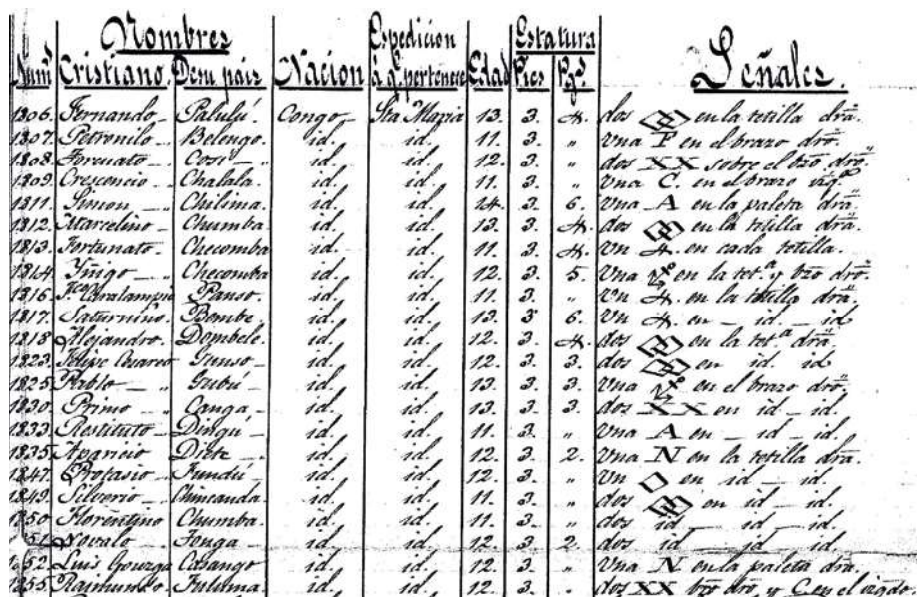 Nombres Espedicion Estatura
Num Cristiano. De su pais Nacion á q.e pertenece Edad Pies Pg.s Señales.
1306. Fernando Palulú. Congo Sta Maria 13. 3. 4. dos en la tetilla drã.
1307. Petronilo Belengo. id. id. 11. 3. " Una P en el brazo drõ.
1308. Forcuato Cosi id. id. 12. 3. " dos XX sobre el bzo drõ.
1309. Crescencio Chalala. id. id. 11. 3. " Una C. en el brazo izq.do
1311. Simon Chilima. id. id. 14. 3. 6. Una A en la paleta drã.
1312. Marcelino Chumba. id. id. 13. 3. 4. dos en la tetilla drã.
1313. Fortunato Checomba id. id. 11. 3. 4. Un 4. en cada tetilla.
1314. Yñigo Checomba id. id. 12. 3. 5. Una en la tet.a y bzo drõ.
1316. Panso. id. id. 11. 3. " Un 4. en la tetilla drã.
1317. Saturnino. Bombe. id. id. 13. 3 6. Un 4. en id id
1318. Alejandro. Dombele. id. id. 12. 3. 4. dos en la tet.a drã.
1323. Felipe Cesareo Gunso id. id. 12. 3. 3. dos en id. id
1325. Pablo Gubú id. id. 13. 3. 3. Una en el brazo drõ.
1330. Primo Canga id. id. 13. 3. 3. dos XX en id id.
1333. Restituto Dingú id. id. 11. 3. " Una A en id id.
1335. Aparicio id. id. 12. 3. 2. Una N en la tetilla drã.
1347. Protasio Fundú id. id. 12. 3. " Un en id id.
1349. Silverio id. id. 11. 3. " dos en id id.
1350. Florentino Chumba. id. id. 11. 3. " dos id id id.
Novato Fonga id. id. 12. 3. 2. dos id id id
Luis Gonzga Casango id. id. 12. 3. " Una N en la paleta drã.
1355. Raimundo id. id. 12. 3. dos XX bzo drõ, y C en el izqdo.